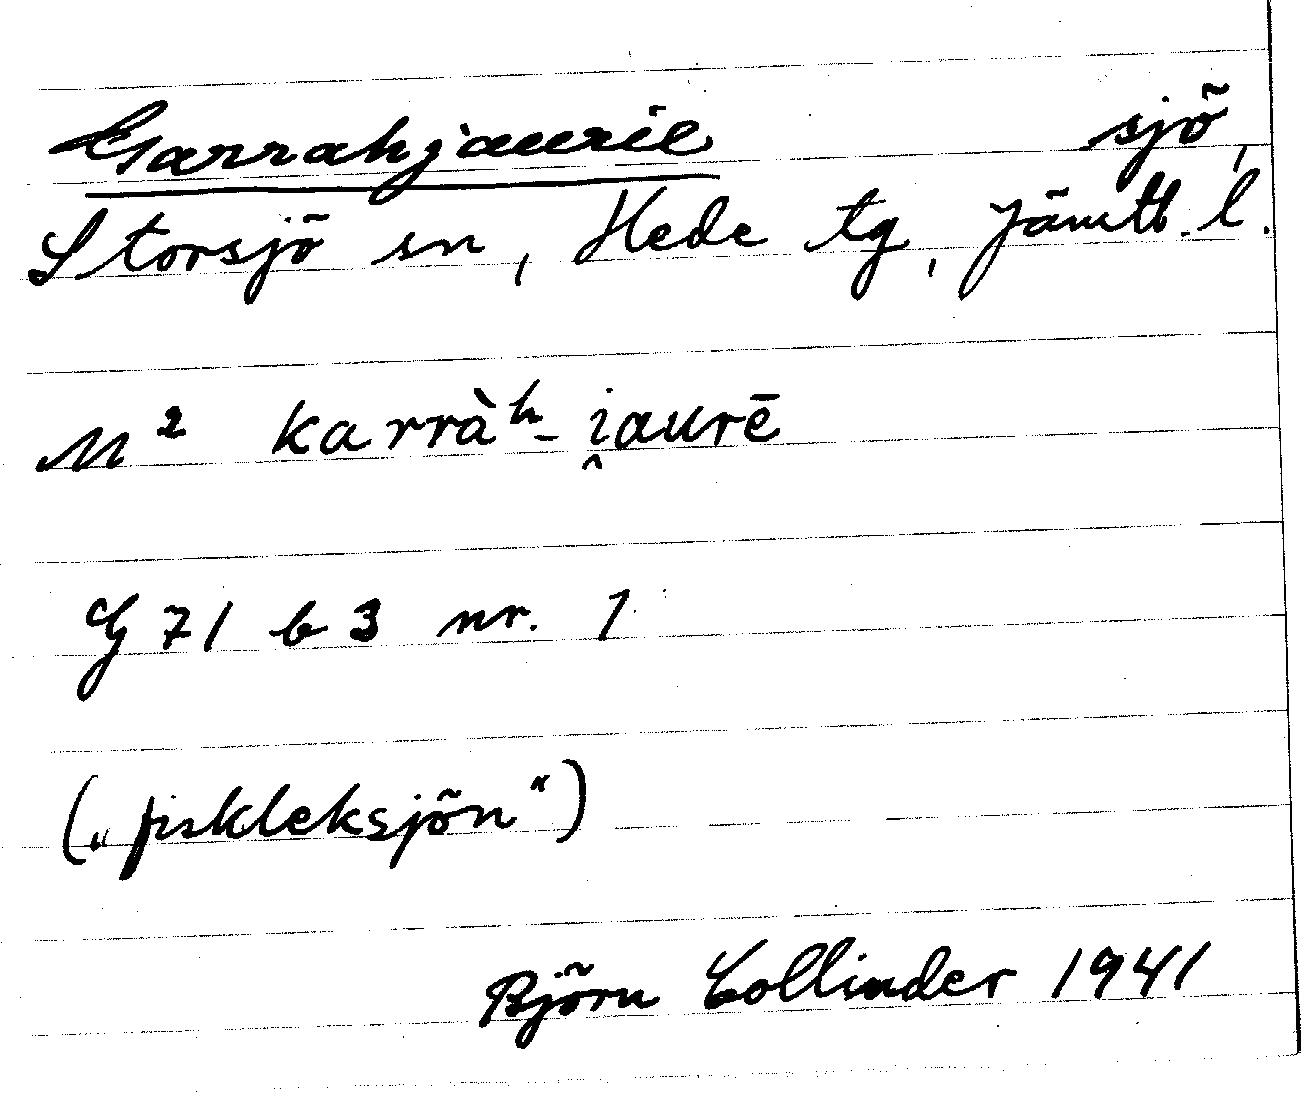 Garrahjaurie sjö,
Storsjö sn, Hede tg, Jämtl. l.
M² karràʰ-i̭aurē
G 71 b 3 nr. 1
(„fiskleksjön“)
Björn Collinder 1941